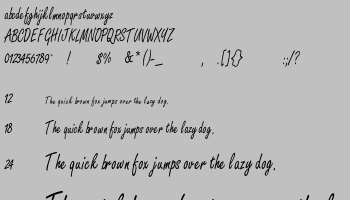 abcdefghijklmnopqrstuvwxyz
ABCDEFGHIJKLMNOPQRSTUVWXYZ
0123456789 ! $% &*()-_ , .[]{} :;/?
12 The quick brown fox jumps over the lazy dog.
18 The quick brown fox jumps over the lazy dog.
24 The quick brown fox jumps over the lazy dog.